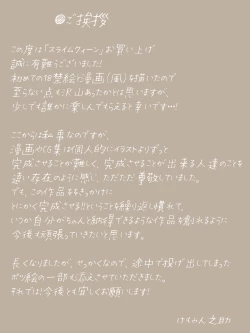 ご挨拶
この度は「スライムクィーン」お買い上げ
誠に有難うございました!
初めての18禁絵と漫画(風)を描いたので
至らない点も沢山あったかとは思いますが、
少しでも誰かに楽しんでもらえると幸いです…!
ここからは私事なのですが、
漫画やCG集は個人的にイラストよりずっと
完成させることが難しく、完成させることが出来る人達のことを
遠い存在のように感じ、ただただ尊敬していました。
でも、この作品をきっかけに
とにかく完成させる!ということを繰り返し慣れて、
いつか自分がちゃんと納得できるような作品を創れるように
今後も頑張っていきたいと思います。
長くなりましたが、せっかくなので、途中で投げ出してしまった
ボツ絵の一部も添えさせていただきました。
それでは今後とも宜しくお願いします!